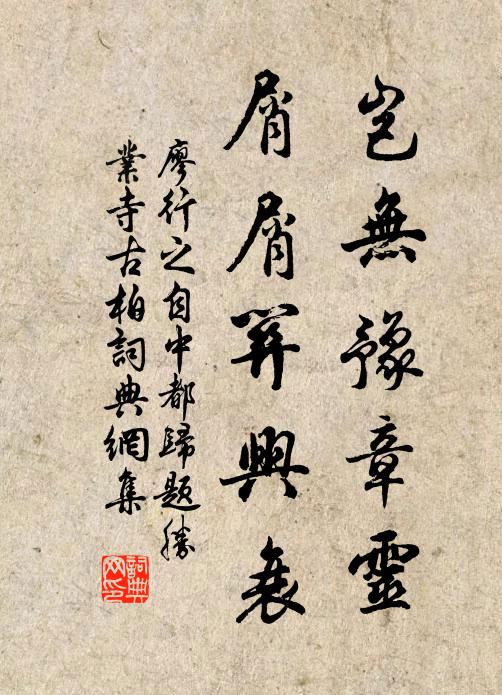 豈無豫章靈
屑屑關興衰
廖行之自中都歸題勝
業寺古柏詞典網集
詞典
网印